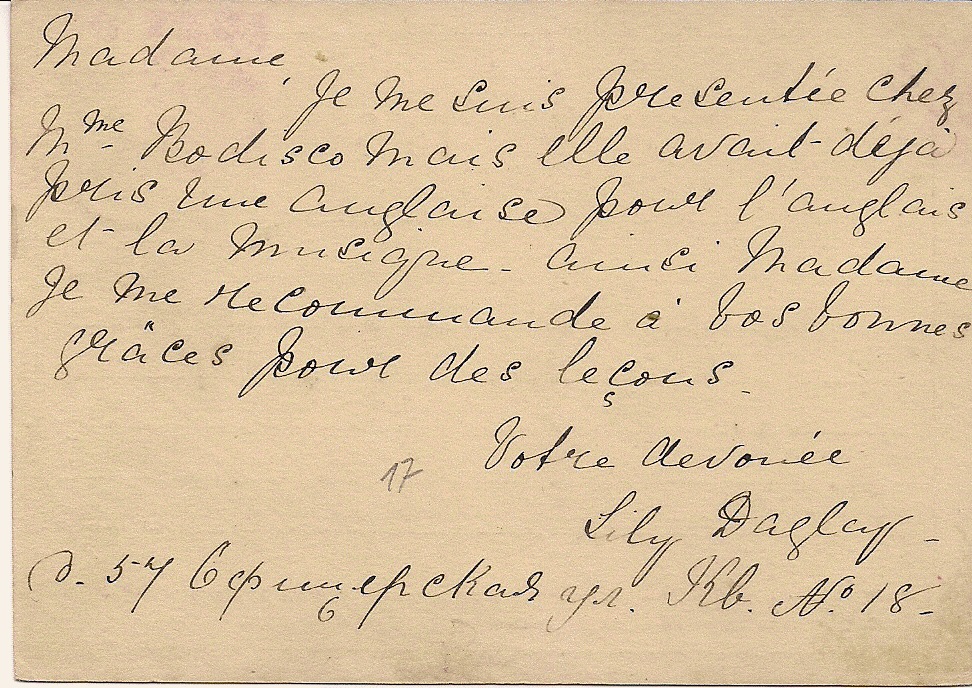 Madame,
Je me suis presentée chez
Mme Bodisco mais elle avait déjà
pris une anglaise pour l'anglais
et la musique - ainsi Madame
Je me recommande à vos bonnes
grâces pour des leçons -
Votre devouée
17
Lily Daglay -
д. 57 Офицерская ул. Кв. № 18 -